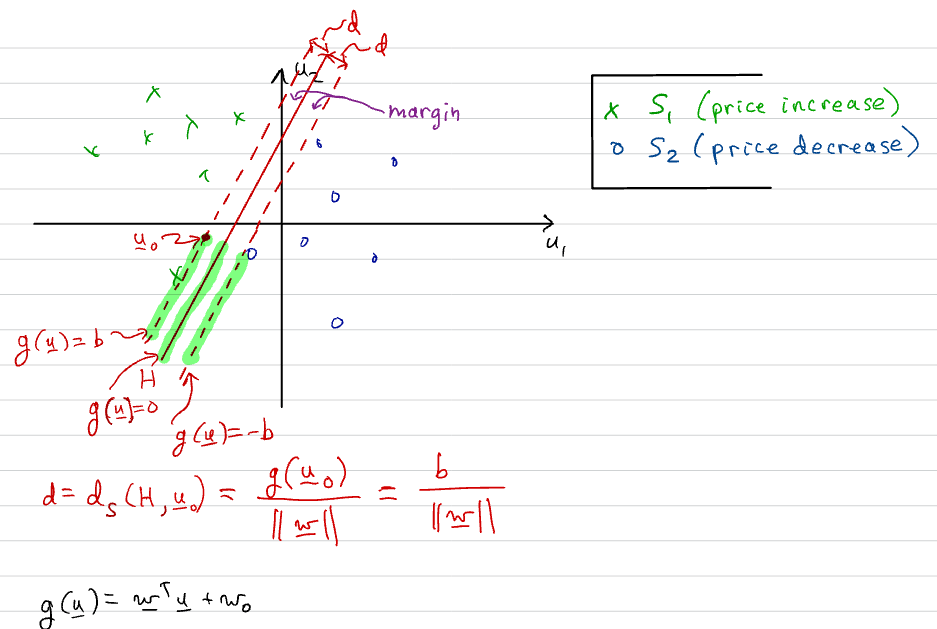 d
d
u₂
margin
x S₁ (price increase)
o S₂ (price decrease)
u₀
u₁
g(u)=b
H
g(u)=0
g(u)=-b
d = dₛ(H, u₀) = g(u₀) / ||w|| = b / ||w||
g(u) = wᵀu + w₀